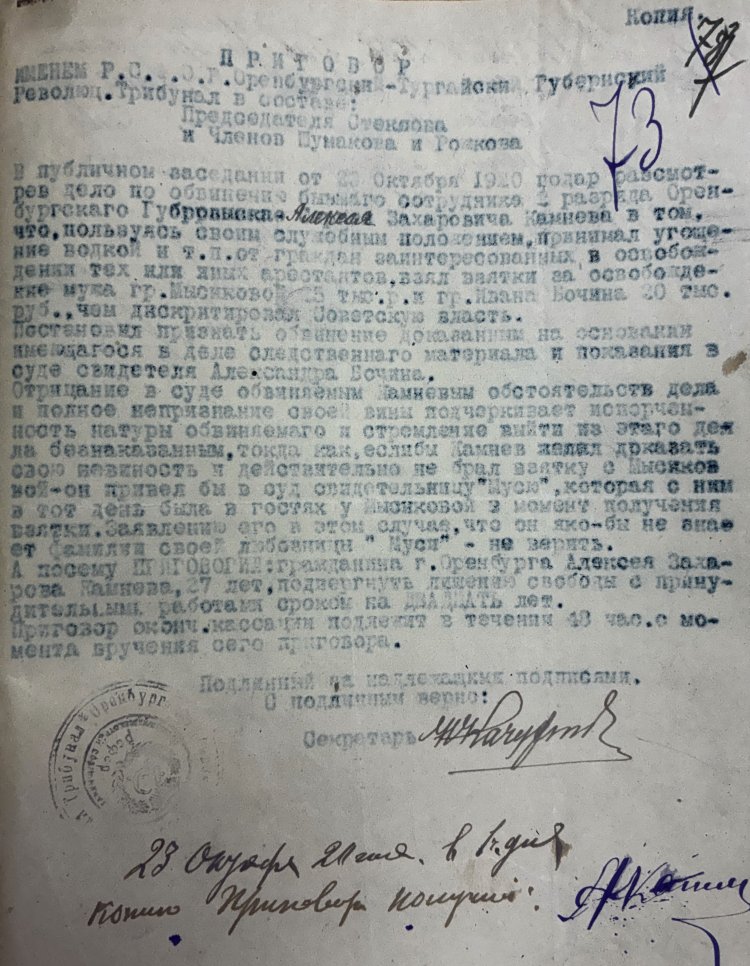 Копия.
73
ПРИГОВОР
ИМЕНЕМ Р.С. .С.Р.Оренбургский-Тургайский Губернский
Революц.Трибунал в составе:
Председателя Стеклова
и Членов Шумакова и Рожкова
В публичном заседании от 23 Октября 1920 годар рассмот-
рев дело по обвинение бывшаго сотрудника 1 разряда Орен-
бургскаго Губрозыска Алексея Захаровича Камнева в том,
что,пользуясь своим служебным положением,принимал угоще-
ние водкой и т.п.от граждан заинтересованных в освобож-
дении тех или иных арестантов,взял взятки за освобожде-
ние мужа гр.Мысиковой 5 тыс.р.и гр.Ивана Бочина 20 тыс.
руб.,чем дискритировал Советскую власть.
Постановил признать обвинение доказанным на основании
имеющагося в деле следственнаго материала и показания в
суде свидетеля Александра Бочина.
Отрицание в суде обвиняемым Камневым обстоятельств дела
и полное непризнание своей вины подчеркивает испорчен-
ность натуры обвиняемаго и стремление выйти из этаго дея
ла безнаказанным,токда как,еслибы Камнев желал доказать
свою невиность и действительно не брал взятку с Мысиков
вой-он привел бы в суд свидетельницу"Мусю",которая с ним
в тот день была в гостях у Мысиковой в момент получения
взятки.Заявлению его в этом случае,что он яко-бы не знае
ет фамилии своей любовницы " Муси" - не верить.
А посему ПРИГОВОРИЛ:гражданина г.Оренбурга Алексея Заха-
рова Камнева,27 лет,подвергнуть лишению свободы с прину-
дительными работами сроком на ДВАДЦАТЬ лет.
Приговор оконч.кассации подлежит в течении 48 час.с мо-
мента вручения сего приговора.
Подлинный за надлежащими подписями.
С подличным верно:
Секретарь
Трибунал Оренбург
РСФСР
23 Октября 20 года. в 1 ч. дня
копию Приговора получил: